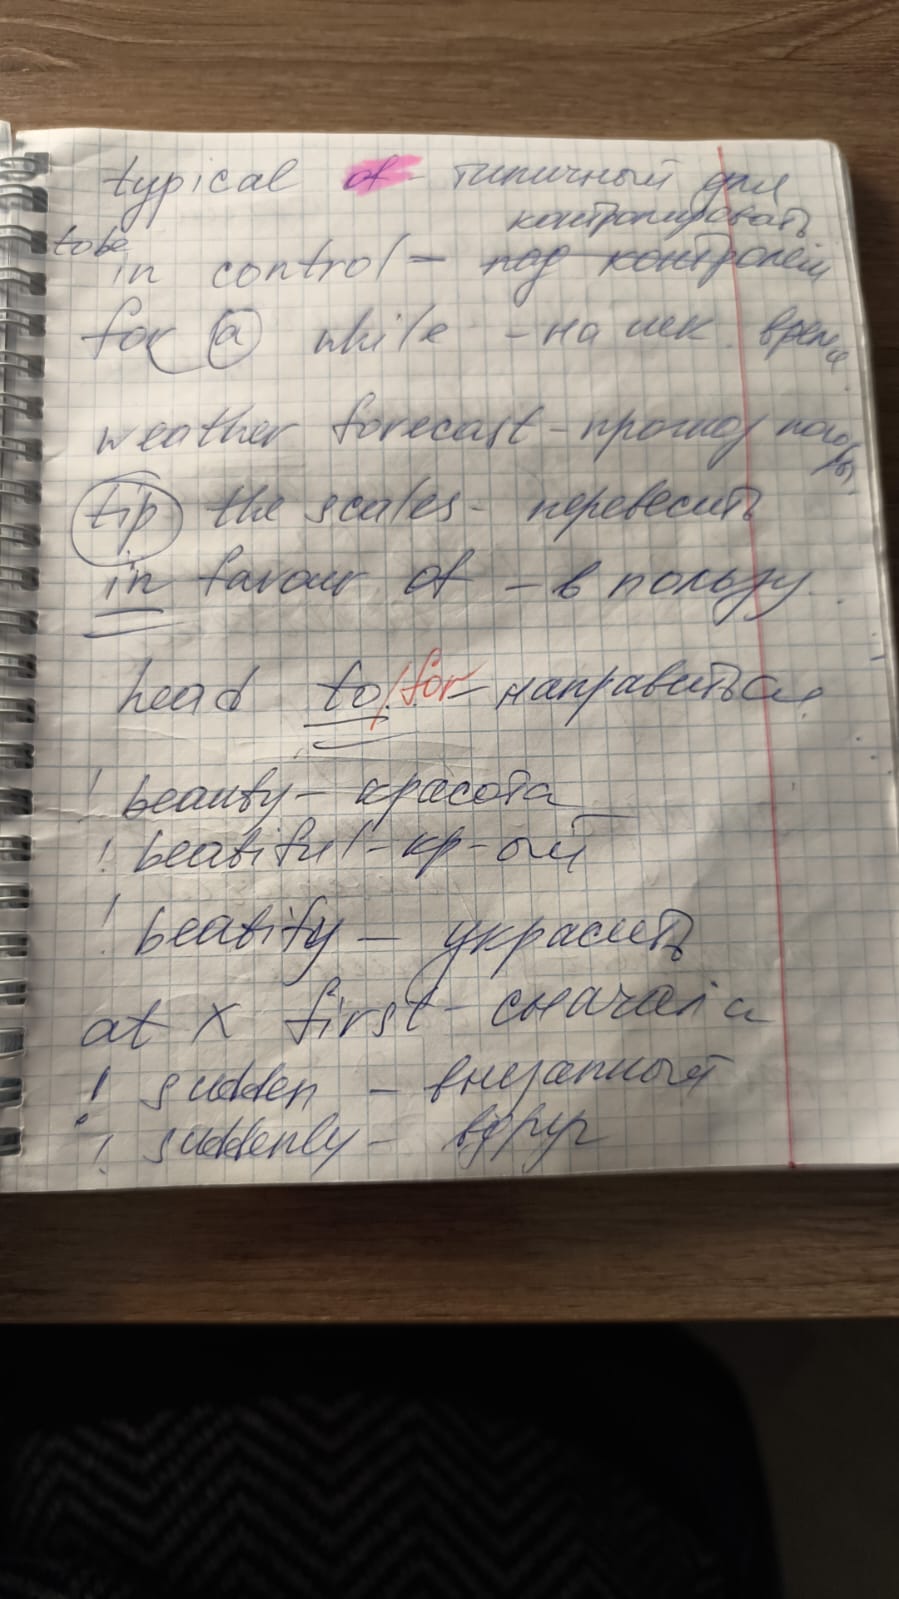 typical of - типичный для
контролировать
to be in control - под контролем
for a while - на нек. время
weather forecast - прогноз погоды
tip the scales - перевесить
in favour of - в пользу
head to/for - направиться
! beauty - красота
! beatiful - кр-ый
! beatify - украсить
at x first - сначала
! sudden - внезапный
! suddenly - вдруг